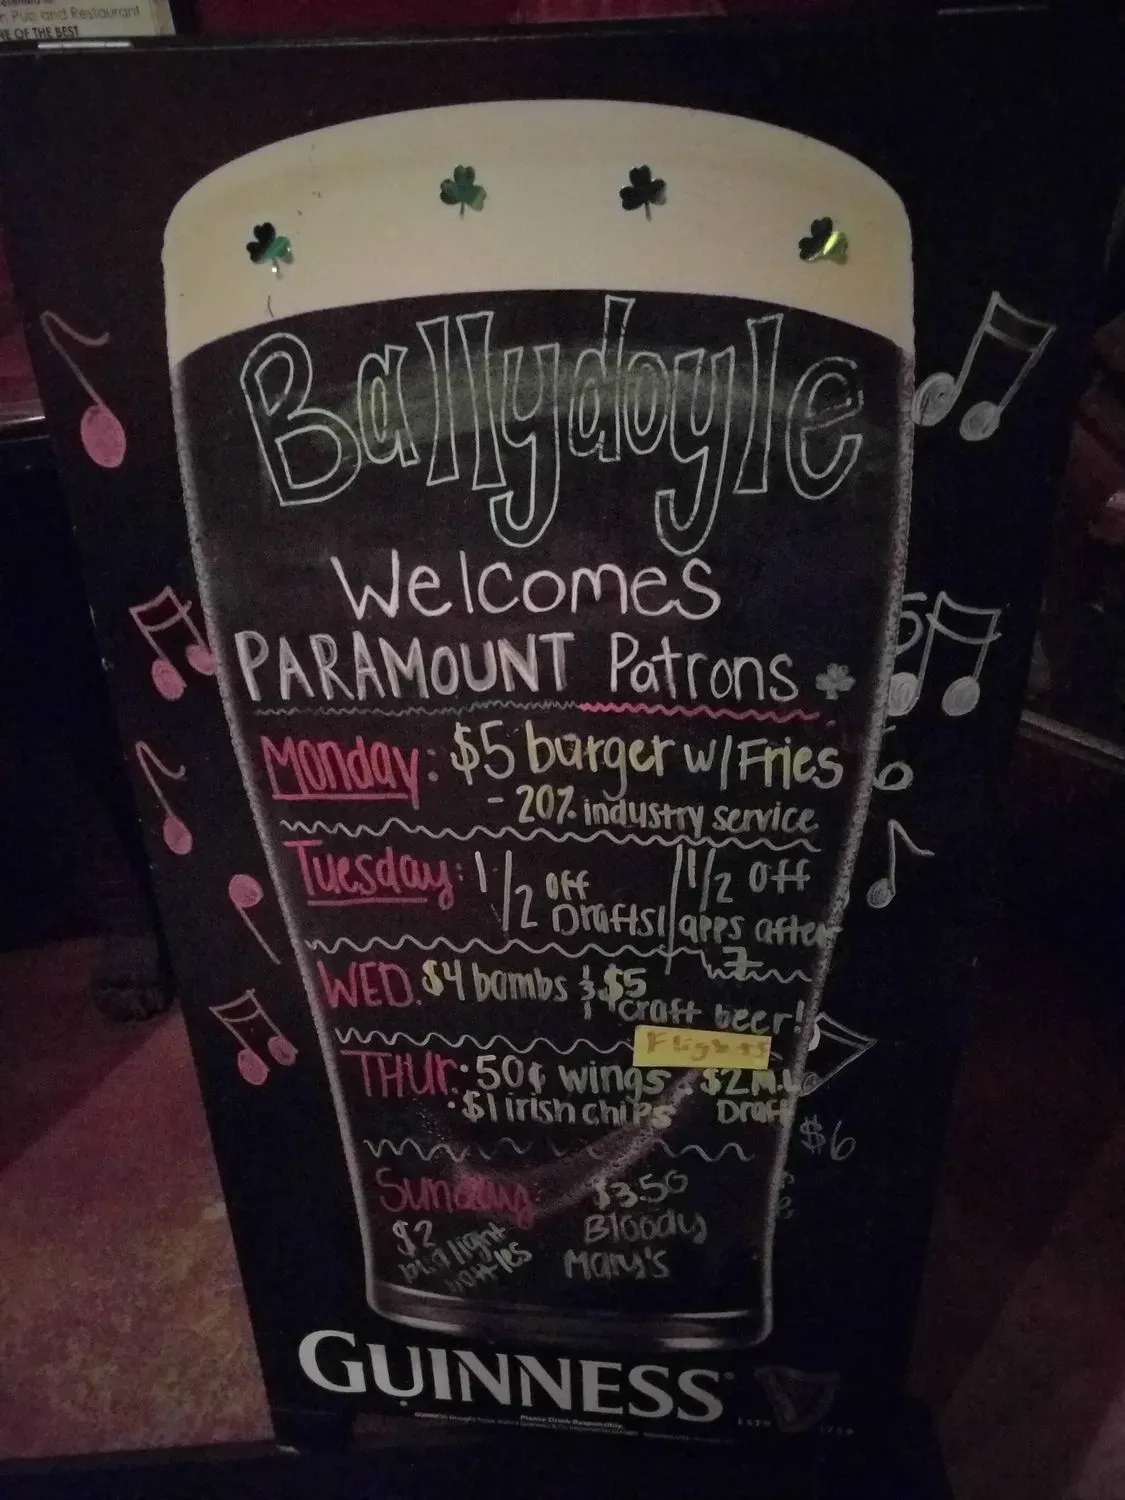 n Pub and Restaurant
NE OF THE BEST
Ballydoyle
Welcomes
PARAMOUNT Patrons
Monday: $5 burger w/Fries
- 20% industry service
Tuesday: 1/2 off Drafts! 1/2 off apps after 7
WED. $4 bombs & $5 craft beer!
Flights
THUR. · 50¢ wings · $2 M.L Draft
· $1 irish chips
$6
Sunday: $3.50
$2 Bloody
bud light Mary's
bottles
GUINNESS
Please Drink Responsibly.
ESTD 1759